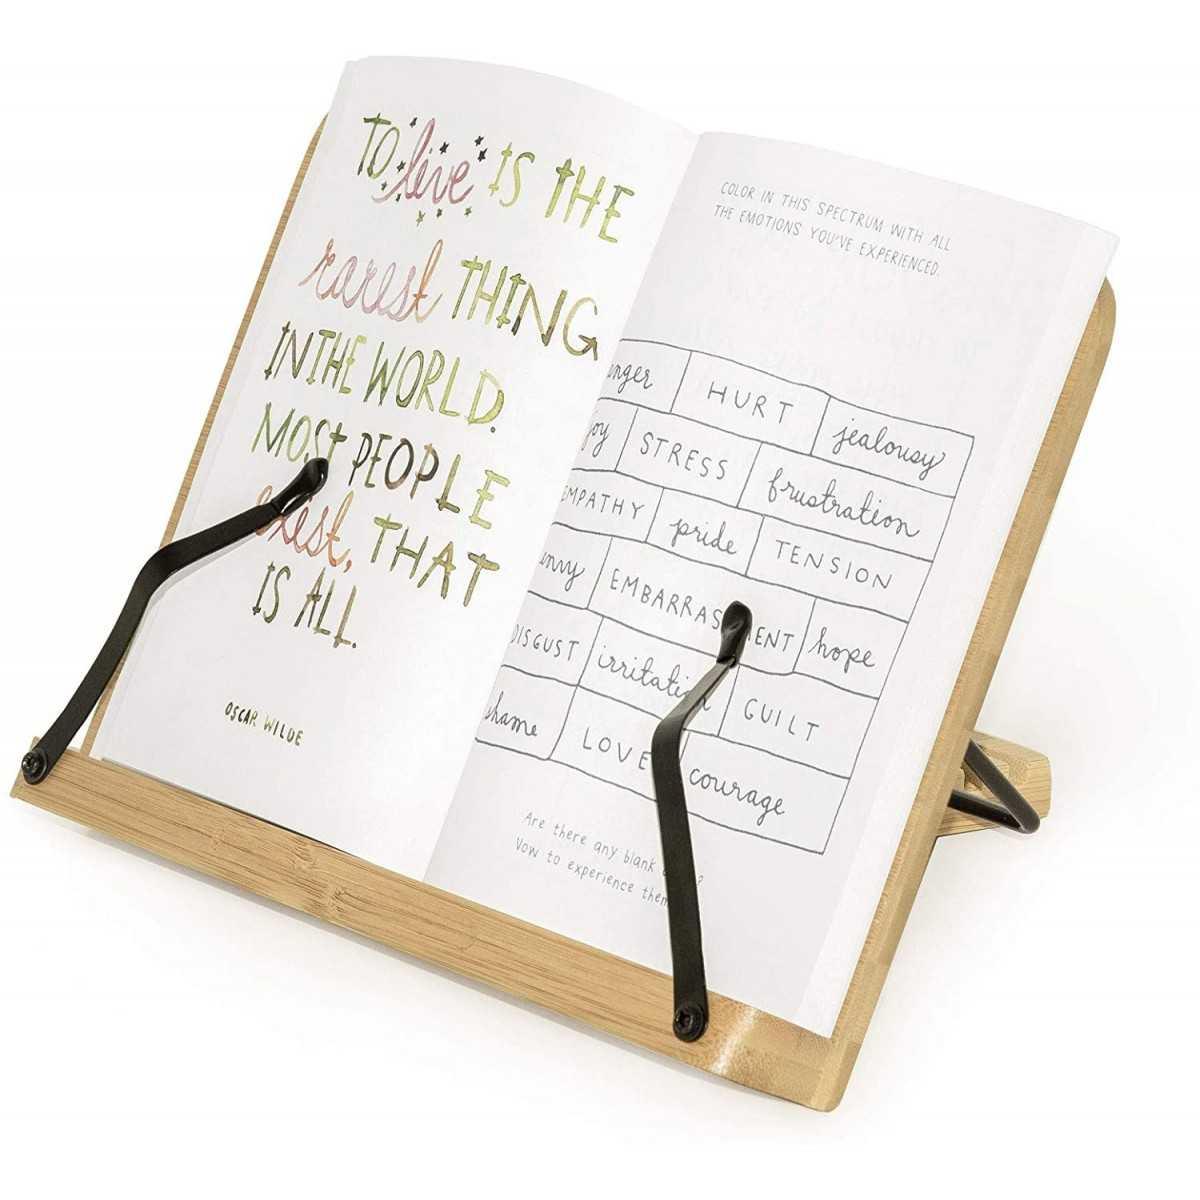 TO live IS THE
rarest THING
IN THE WORLD.
MOST PEOPLE
exist, THAT
IS ALL.
OSCAR WILDE
COLOR IN THIS SPECTRUM WITH ALL
THE EMOTIONS YOU'VE EXPERIENCED.
HURT jealousy
joy STRESS frustration
EMPATHY pride TENSION
envy EMBARRASSMENT hope
DISGUST irritation GUILT
shame LOVE courage
Are there any blank
Vow to experience them